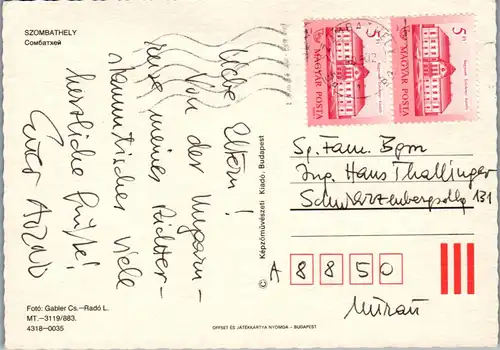 SZOMBATHELY
Сомбатхей
Liebe Eltern!
Von der Ungarn-
reise meines Richter-
Stammtisches viele
herzliche Grüße!
Euer
5 Ft
MAGYAR POSTA
5 Ft
MAGYAR POSTA
Sp. Fam. Bgm
Ing. Hans Thallinger
Schwarzenbergsdlg 131
A 8850
Murau
© Képzőművészeti Kiadó, Budapest
Fotó: Gabler Cs.—Radó L.
MT.—3119/883.
4318-0035
OFFSET ÉS JÁTÉKKÁRTYA NYOMDA – BUDAPEST